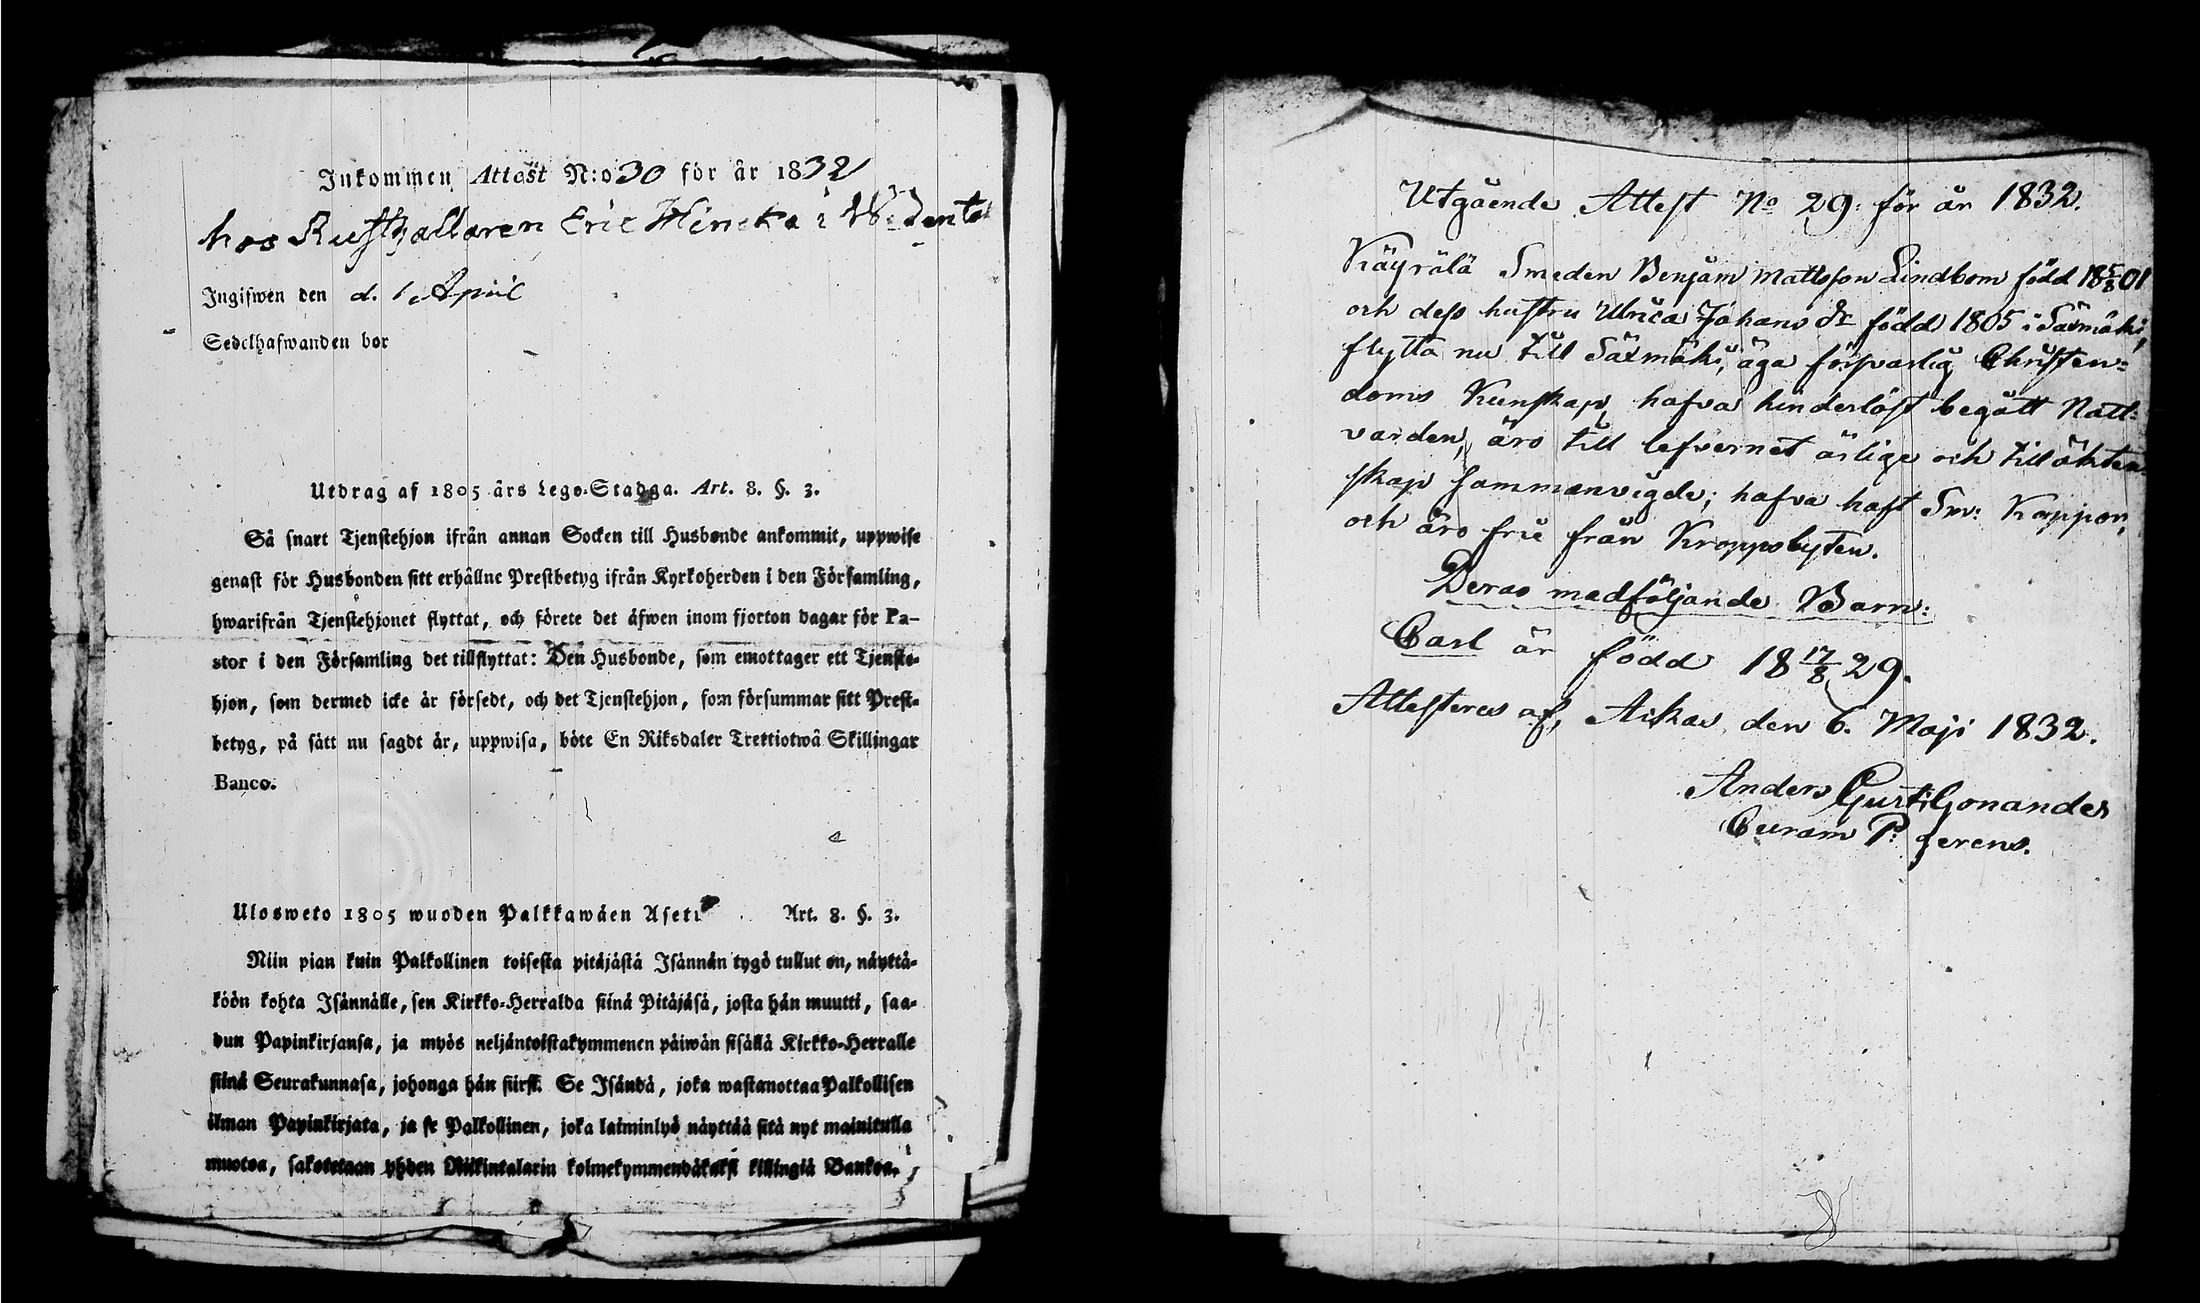 Inkommen Attest N:o 30 för år 1832
hos Rusthållaren Eric Hincka i
Ingifwen den d. 1 April
Sedelhafwanden bor
Utdrag af 1805 års Lego-Stadga. Art. 8. §. 3.
Så snart Tjenstehjon ifrån annan Socken till Husbonde ankommit, uppwise
genast för Husbonden sitt erhållne Prestbetyg ifrån Kyrkoherden i den Församling,
hwarifrån Tjenstehjonet flyttat, och förete det äfwen inom fjorton dagar för Pa-
stor i den Församling det tillflyttat: Den Husbonde, som emottager ett Tjenste-
hjon, som dermed icke är försedt, och det Tjenstehjon, som försummar sitt Prest-
betyg, på sätt nu sagdt är, uppwisa, böte En Riksdaler Trettiotwå Skillingar
Banco.
Ulosweto 1805 wuoden Palkkawäen Aset Art. 8. §. 3.
Niin pian kuin Palkollinen toisesta pitäjästä Isännän tygö tullut on, näyttä-
köön kohta Isännälle, sen Kirkko-Herralda siinä Pitäjäsä, josta hän muutti, saa-
dun Papinkirjansa, ja myös neljäntoistakymmenen päiwän sisällä Kirkko-Herralle
siinä Seurakunnasa, johonga hän siirsi. Se Isändä, joka wastanottaa Palkollisen
ilman Papinkirjata, ja se Palkollinen, joka laiminlyö näyttää sitä nyt mainitulla
muotoa, sakotetaan yhden Riikintalarin kolmekymmendäkaksi killingiä Bankoa.
Utgående Attest No 29: för år 1832.
Käyrälä Smeden Benjam Mattsson Lindbom född 18 5/8 01
och dess hustru Ulrica Johans dr född 1805 i Säxmäki,
flytta nu till Säxmäki, äga försvarlig Christen=
doms Kunskap, hafva hinderlöst begått Natt:
varden, äro till lefvernet ärlige och till äkten
skap sammanvigde; hafva haft Sm: Koppor,
och äro frie från Kroppslyten.
Deras medföljande Barn:
Carl är född 18 17/8 29.
Attesteras af, Ackas den 6. Maji 1832.
Anders Gust: Gonander
Curam P: gerens.